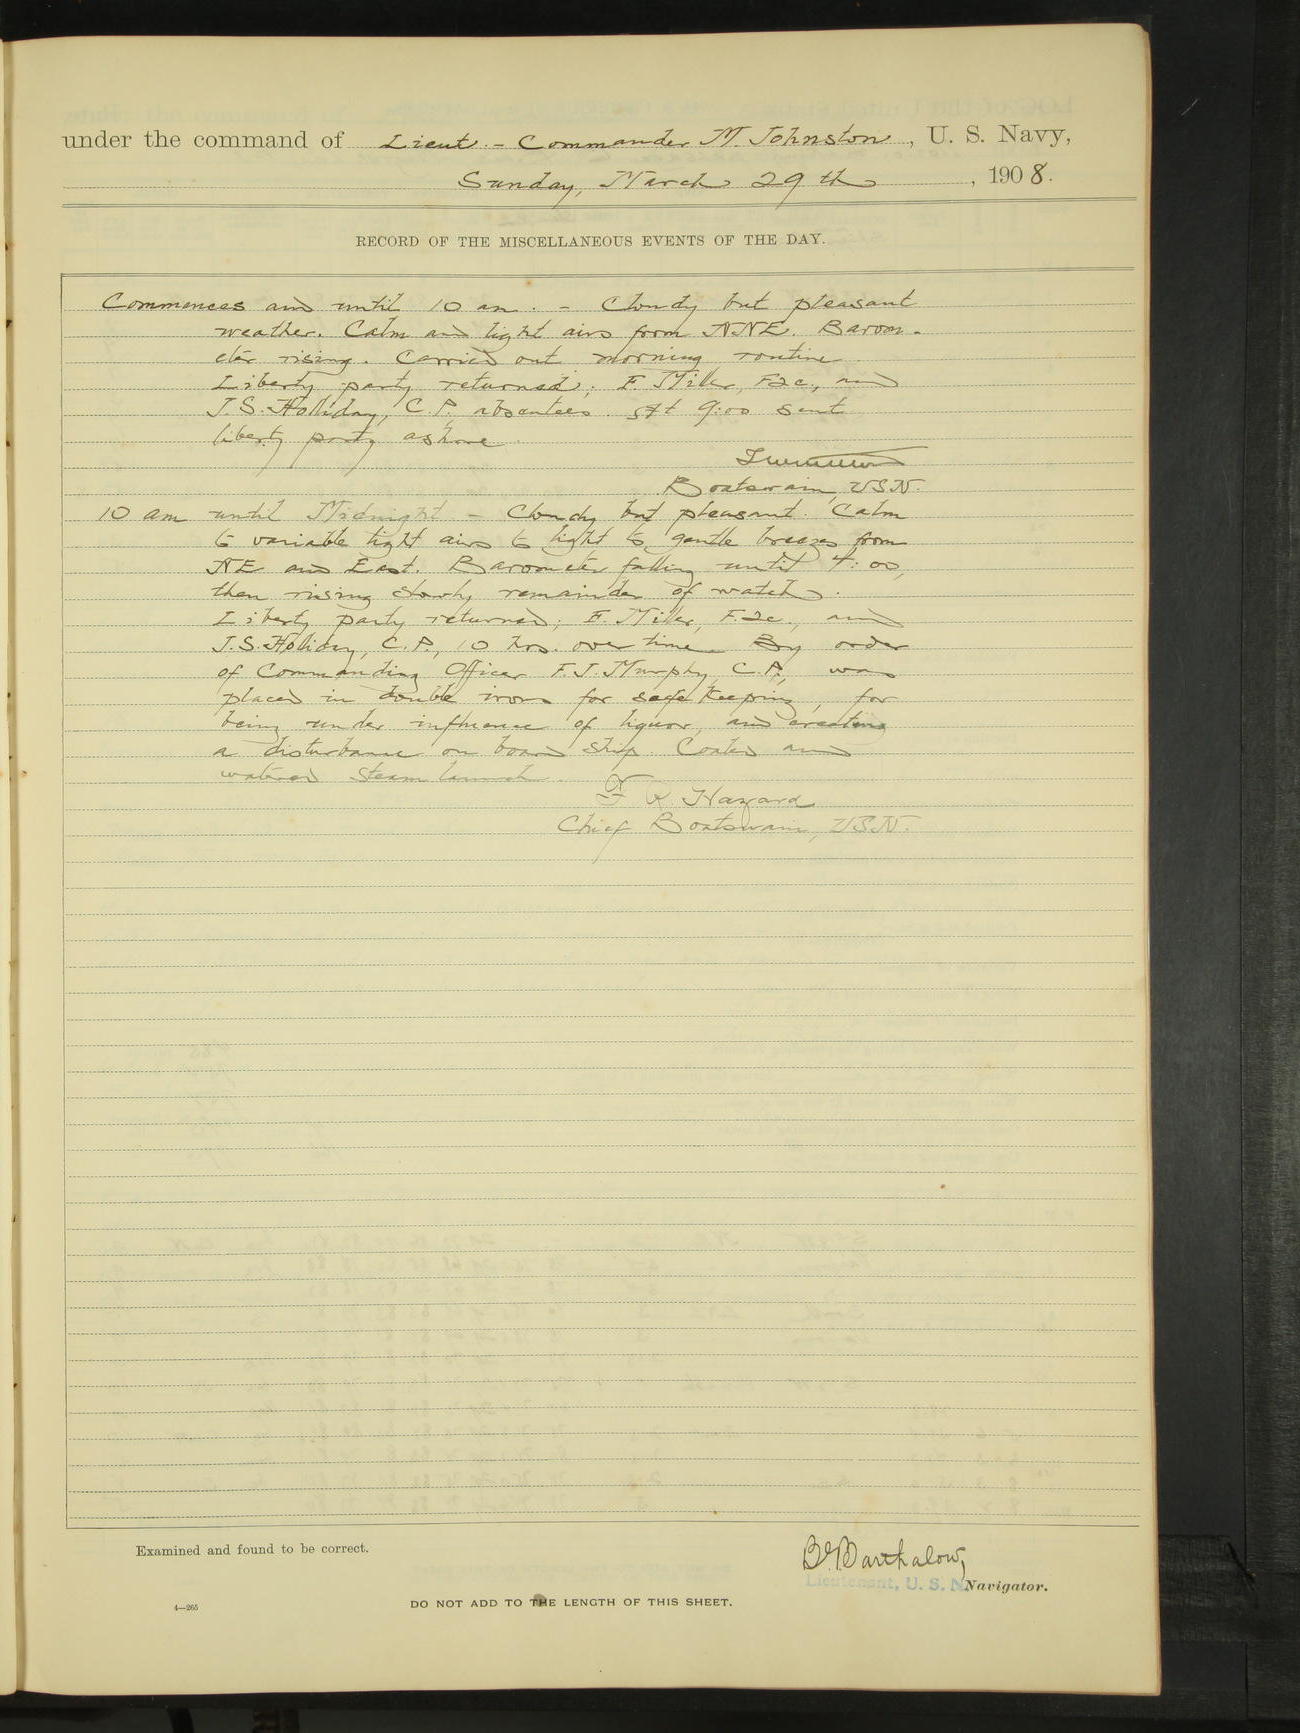 under the command of Lieut.-Commander M. Johnston, U. S. Navy,
Sunday, March 29th, 1908.
RECORD OF THE MISCELLANEOUS EVENTS OF THE DAY.
Commences and until 10 am. - Cloudy but pleasant
weather. Calm and light airs from NNE. Barom-
eter rising. Carried out morning routine
Liberty party returned; F. Miller, F2c., and
J.S. Holliday, C.P. absentees. At 9:00 sent
liberty party ashore.
Boatswain, USN.
10 am until Midnight - Cloudy but pleasant. Calm
to variable light airs to light to gentle breezes from
NE and East. Barometer falling until 4:00,
then rising slowly remainder of watch.
Liberty party returned; F. Miller, F.2c., and
J.S. Holiday, C.P., 10 hrs. over time. By order
of Commanding Officer F.J. Murphy, C.P., was
placed in double irons for safe keeping, for
being under influence of liquor, and creating
a disturbance on board ship. Coaled and
watered steam launch.
Hazard
Chief Boatswain, USN.
Examined and found to be correct.
Barthalow,
Lieutenant, U. S. N. Navigator.
4—265
DO NOT ADD TO THE LENGTH OF THIS SHEET.